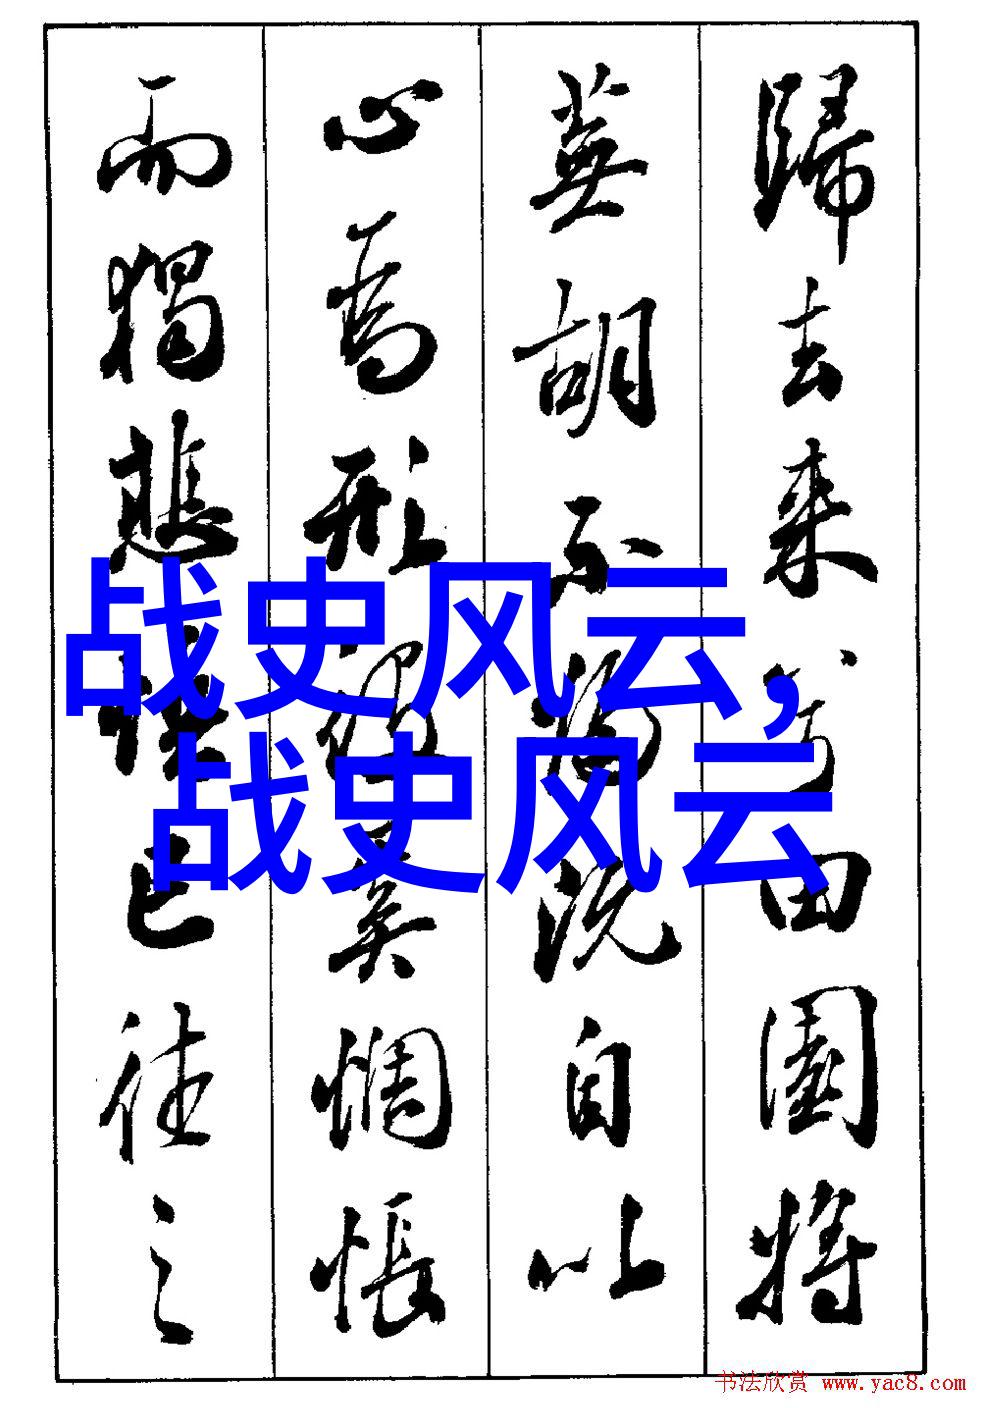 歸去来兮田園將
蕪胡不歸既自以
心為形役奚惆悵
而獨悲已往之
战史风云,
战史风云
书法欣赏 www.yac8.com